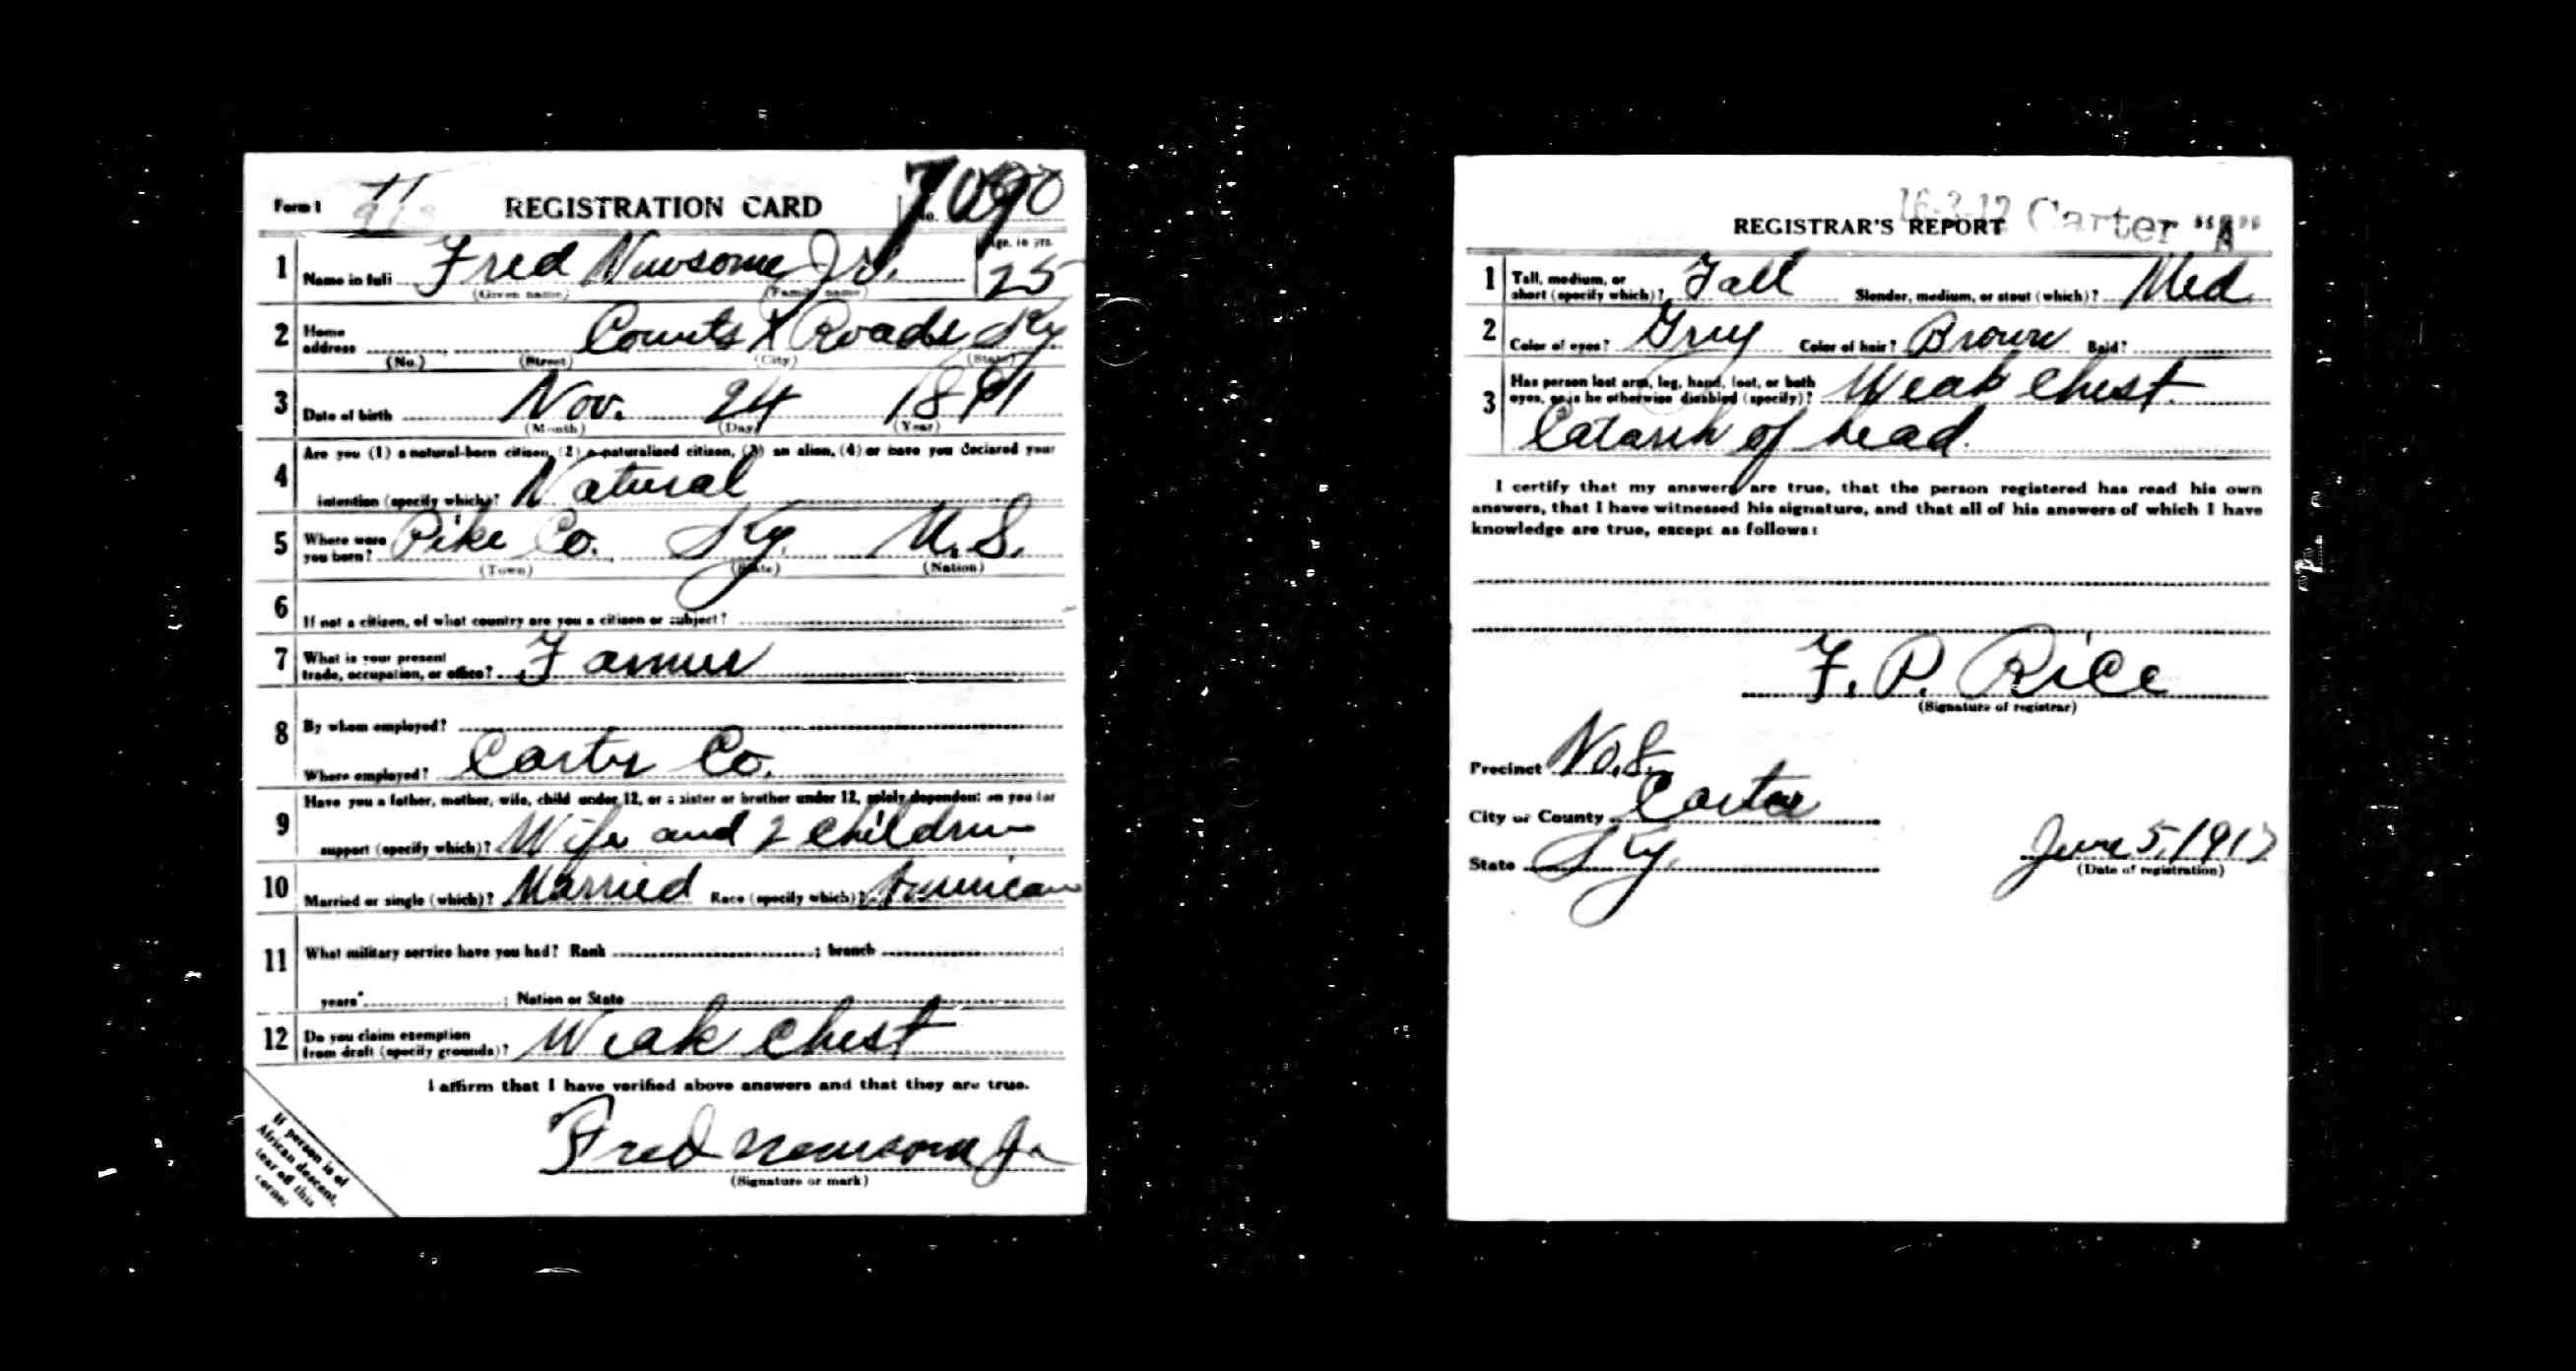 Form 1 REGISTRATION CARD No.
1 Name in full Fred Newsome Jr. Age, in yrs. 25
(Given name) (Family name)
2 Home address Counts X Roads Ky
(No.) (Street) (City) (State)
3 Date of birth Nov. 24 1891
(Month) (Day) (Year)
4 Are you (1) a natural-born citizen, (2) a naturalized citizen, (3) an alien, (4) or have you declared your
intention (specify which)? Natural
5 Where were you born? Pike Co. Ky. U.S.
(Town) (State) (Nation)
6 If not a citizen, of what country are you a citizen or subject?
7 What is your present trade, occupation, or office? Farmer
8 By whom employed?
Where employed? Carter Co.
9 Have you a father, mother, wife, child under 12, or a sister or brother under 12, solely dependent on you for
support (specify which)? Wife and 2 children
10 Married or single (which)? Married Race (specify which)? American
11 What military service have you had? Rank ; branch ;
years ; Nation or State
12 Do you claim exemption from draft (specify grounds)? Weak chest
I affirm that I have verified above answers and that they are true.
Fred Newsom Jr
(Signature or mark)
If person is of
African descent,
tear off this
corner
Carter "A"
REGISTRAR'S REPORT
1 Tall, medium, or short (specify which)? Tall Slender, medium, or stout (which)? Med.
2 Color of eyes? Grey Color of hair? Brown Bald?
3 Has person lost arm, leg, hand, foot, or both eyes, or is he otherwise disabled (specify)? Weak chest.
Catarrh of head.
I certify that my answers are true, that the person registered has read his own
answers, that I have witnessed his signature, and that all of his answers of which I have
knowledge are true, except as follows:
F. P. Rice
(Signature of registrar)
Precinct No. 8
City or County Carter
State Ky.
June 5, 1917
(Date of registration)